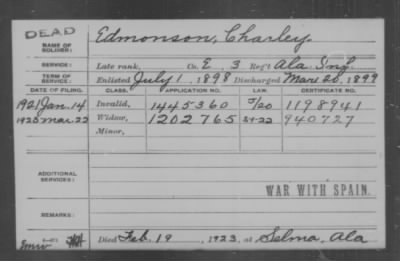 DEAD
NAME OF SOLDIER: Edmonson, Charley
SERVICE: Late rank, Co. E 3 Reg't Ala Inf
TERM OF SERVICE: Enlisted July 1 1898 Discharged Mar 20, 1899
DATE OF FILING. CLASS. APPLICATION NO. LAW. CERTIFICATE NO.
1921 Jan. 14 Invalid, 1445360 5/20 1198941
Mar. 22 Widow, 1202765 940727
Minor,
ADDITIONAL SERVICES:
WAR WITH SPAIN.
REMARKS:
Died Feb. 19, 1923, at Selma, Ala